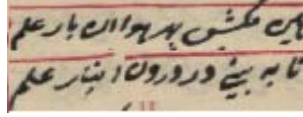 هین مکش بهر هوا این بار علم
تا به بینی در درون انبار علم